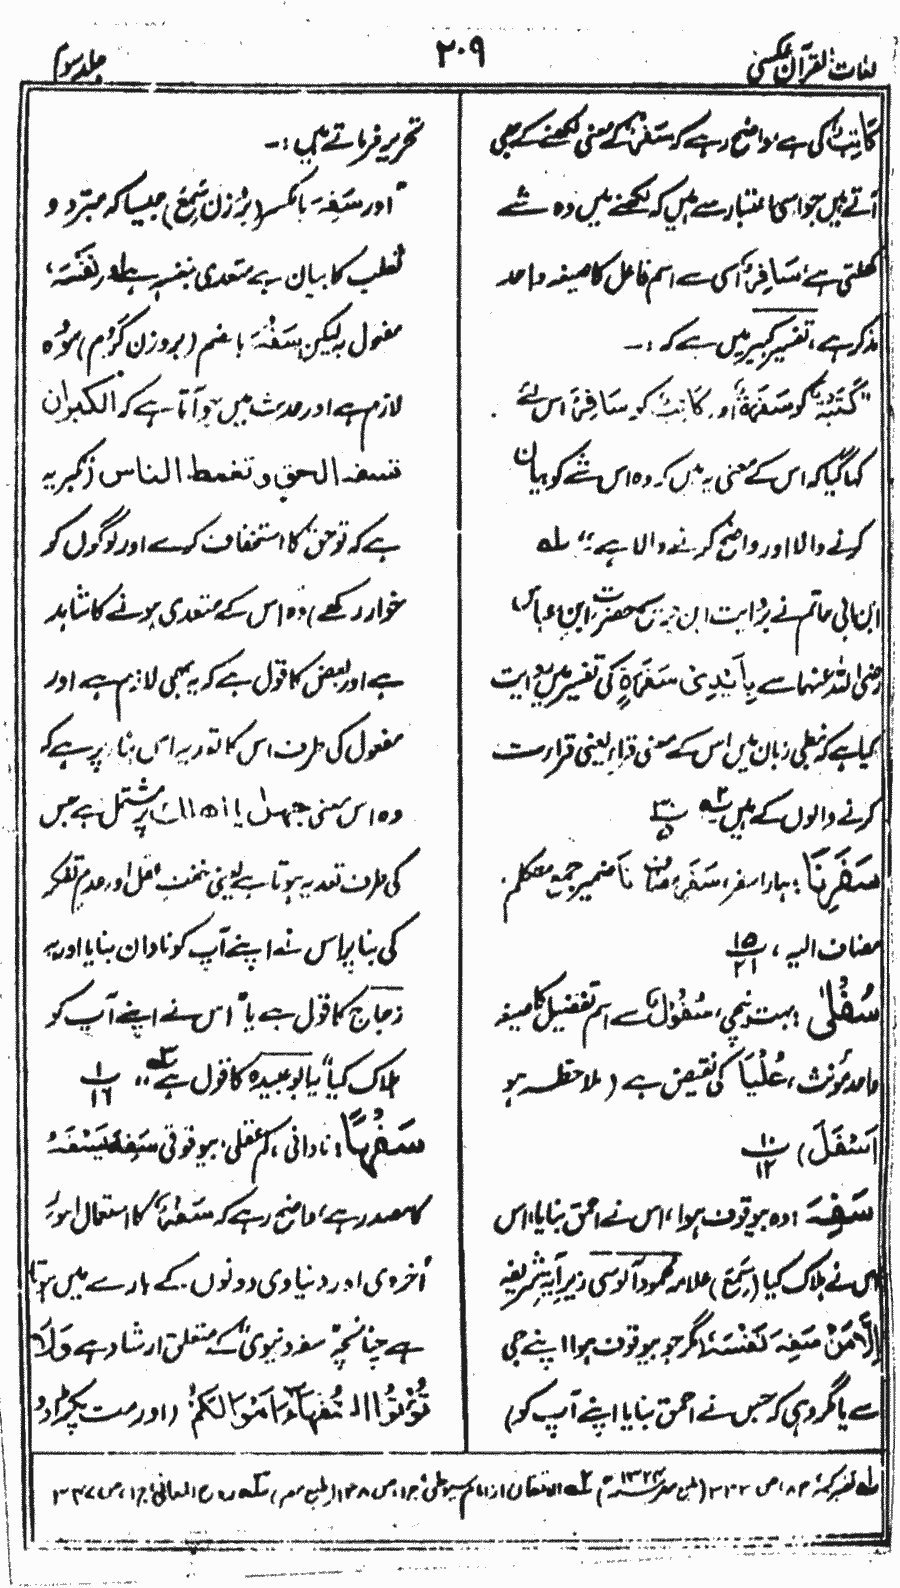 لغات القرآن عکسی
۲۰۹
جلد سوم
کَاتِبٌ کی ہے، واضح رہے کہ سَفَرٌ کے معنی لکھنے کے بھی
آتے ہیں جو اسی اعتبار سے ہیں کہ لکھنے میں وہ شے
کھلتی ہے، سَافِرٌ اسی سے اسم فاعل کا صیغہ واحد
مذکر ہے، تفسیر کبیر میں ہے کہ :۔
"کَتَبَةٌ کو سَفَرَةٌ اور کاتِبٌ کو سَافِرٌ اس لئے
کہا گیا کہ اس کے معنی یہ ہیں کہ وہ اس شے کو بیان
کرنے والا اور واضح کرنے والا ہے" لہ
ابن ابی حاتم نے بروایت ابن جریج حضرت ابن عباس
رضی اللہ عنہما سے بِاَیْدِیْ سَفَرَةٍ کی تفسیر میں روایت
کیا ہے کہ نبطی زبان میں اس کے معنی قراء یعنی قراءت
کرنے والوں کے ہیں ۲ہ ۳۰/۵
سَفَرِنَا : ہمارا سفر، سَفَرِ مضاف نَا ضمیر جمع متکلم
مضاف الیہ، ۱۵/۲۱
سُفْلٰی : بہت نیچی، سُفُوْلٌ سے اسم تفضیل کا صیغہ
واحد مؤنث، عُلْیَا کی نقیض ہے (ملاحظہ ہو
اَسْفَلَ) ۱۰/۱۲
سَفِهَ : وہ بیوقوف ہوا، اس نے احمق بنایا، اس
اس نے ہلاک کیا (سَمِعَ) علامہ محمود آلوسی زیر آیۂ شریفہ
اِلَّا مَنْ سَفِهَ نَفْسَهٗ (مگر جو بیوقوف ہوا اپنے جی
سے یا مگر وہی کہ جس نے احمق بنایا اپنے آپ کو)
تحریر فرماتے ہیں :۔
"اور سَفِهَ بالکسر (بروزن سَمِعَ) جیسا کہ مبرّد و
ثعلب کا بیان ہے متعدی بنفسہ ہے اور نَفْسَهٗ،
مفعول بہ لیکن سَفُهَ بالضم (بروزن کَرُمَ) سو وہ
لازم ہے اور حدیث میں جو آتا ہے کہ الکبر ان
تسفه الحق وتغمط الناس (کبر یہ
ہے کہ تو حق کا استخفاف کرے اور لوگوں کو
خوار رکھے) وہ اس کے متعدی ہونے کا شاہد
ہے اور بعض کا قول ہے کہ یہ بھی لازم ہے اور
مفعول کی طرف اس کا تعدیہ اس بنا پر ہے کہ
وہ اس معنی جهل یا اهلك پر مشتمل ہے جس
کی طرف تعدیہ ہوتا ہے یعنی خفتِ عقل اور عدم تفکر
کی بنا پر اس نے اپنے آپ کو نادان بنایا اور یہ
زجاج کا قول ہے یا" اس نے اپنے آپ کو
ہلاک کیا" یہ ابو عبیدہ کا قول ہے ۳ہ" ۱/۱۶
سَفَهًا : نادانی، کم عقلی، بیوقوفی سَفِهَ یَسْفَهُ
کا مصدر ہے، واضح رہے کہ سَفَهٌ کا استعمال امور
اُخروی اور دنیاوی دونوں کے بارے میں ہوتا
ہے چنانچہ سفہ دنیوی کے متعلق ارشاد ہے وَلَا
تُؤْتُوا السُّفَهَآءَ اَمْوَالَکُمُ (اور مت پکڑا دو
لہ تفسیر کبیر ج ۸، ص ۳۳۲ (طبع مصر ۱۳۲۴ھ) ۲ہ الاتقان از امام سیوطی ج ۱، ص ۱۳۸ (طبع مصر) ۳ہ روح المعانی ج ۱، ص ۳۳۷